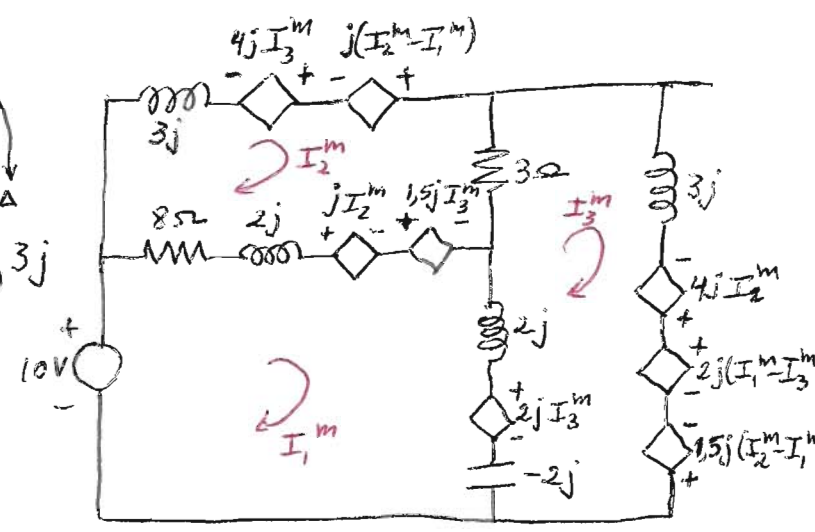 4jI₃ᵐ j(I₂ᵐ-I₁ᵐ)
- + - +
3j
I₂ᵐ
3Ω
3j
8Ω 2j jI₂ᵐ 1,5jI₃ᵐ
+ - + -
I₃ᵐ
3j
-
4jI₂ᵐ
+
+
10V
-
2j
+
2jI₃ᵐ
-
+
2j(I₁ᵐ-I₃ᵐ
-
I₁ᵐ
-2j
-
1,5j(I₂ᵐ-I₁ᵐ
+